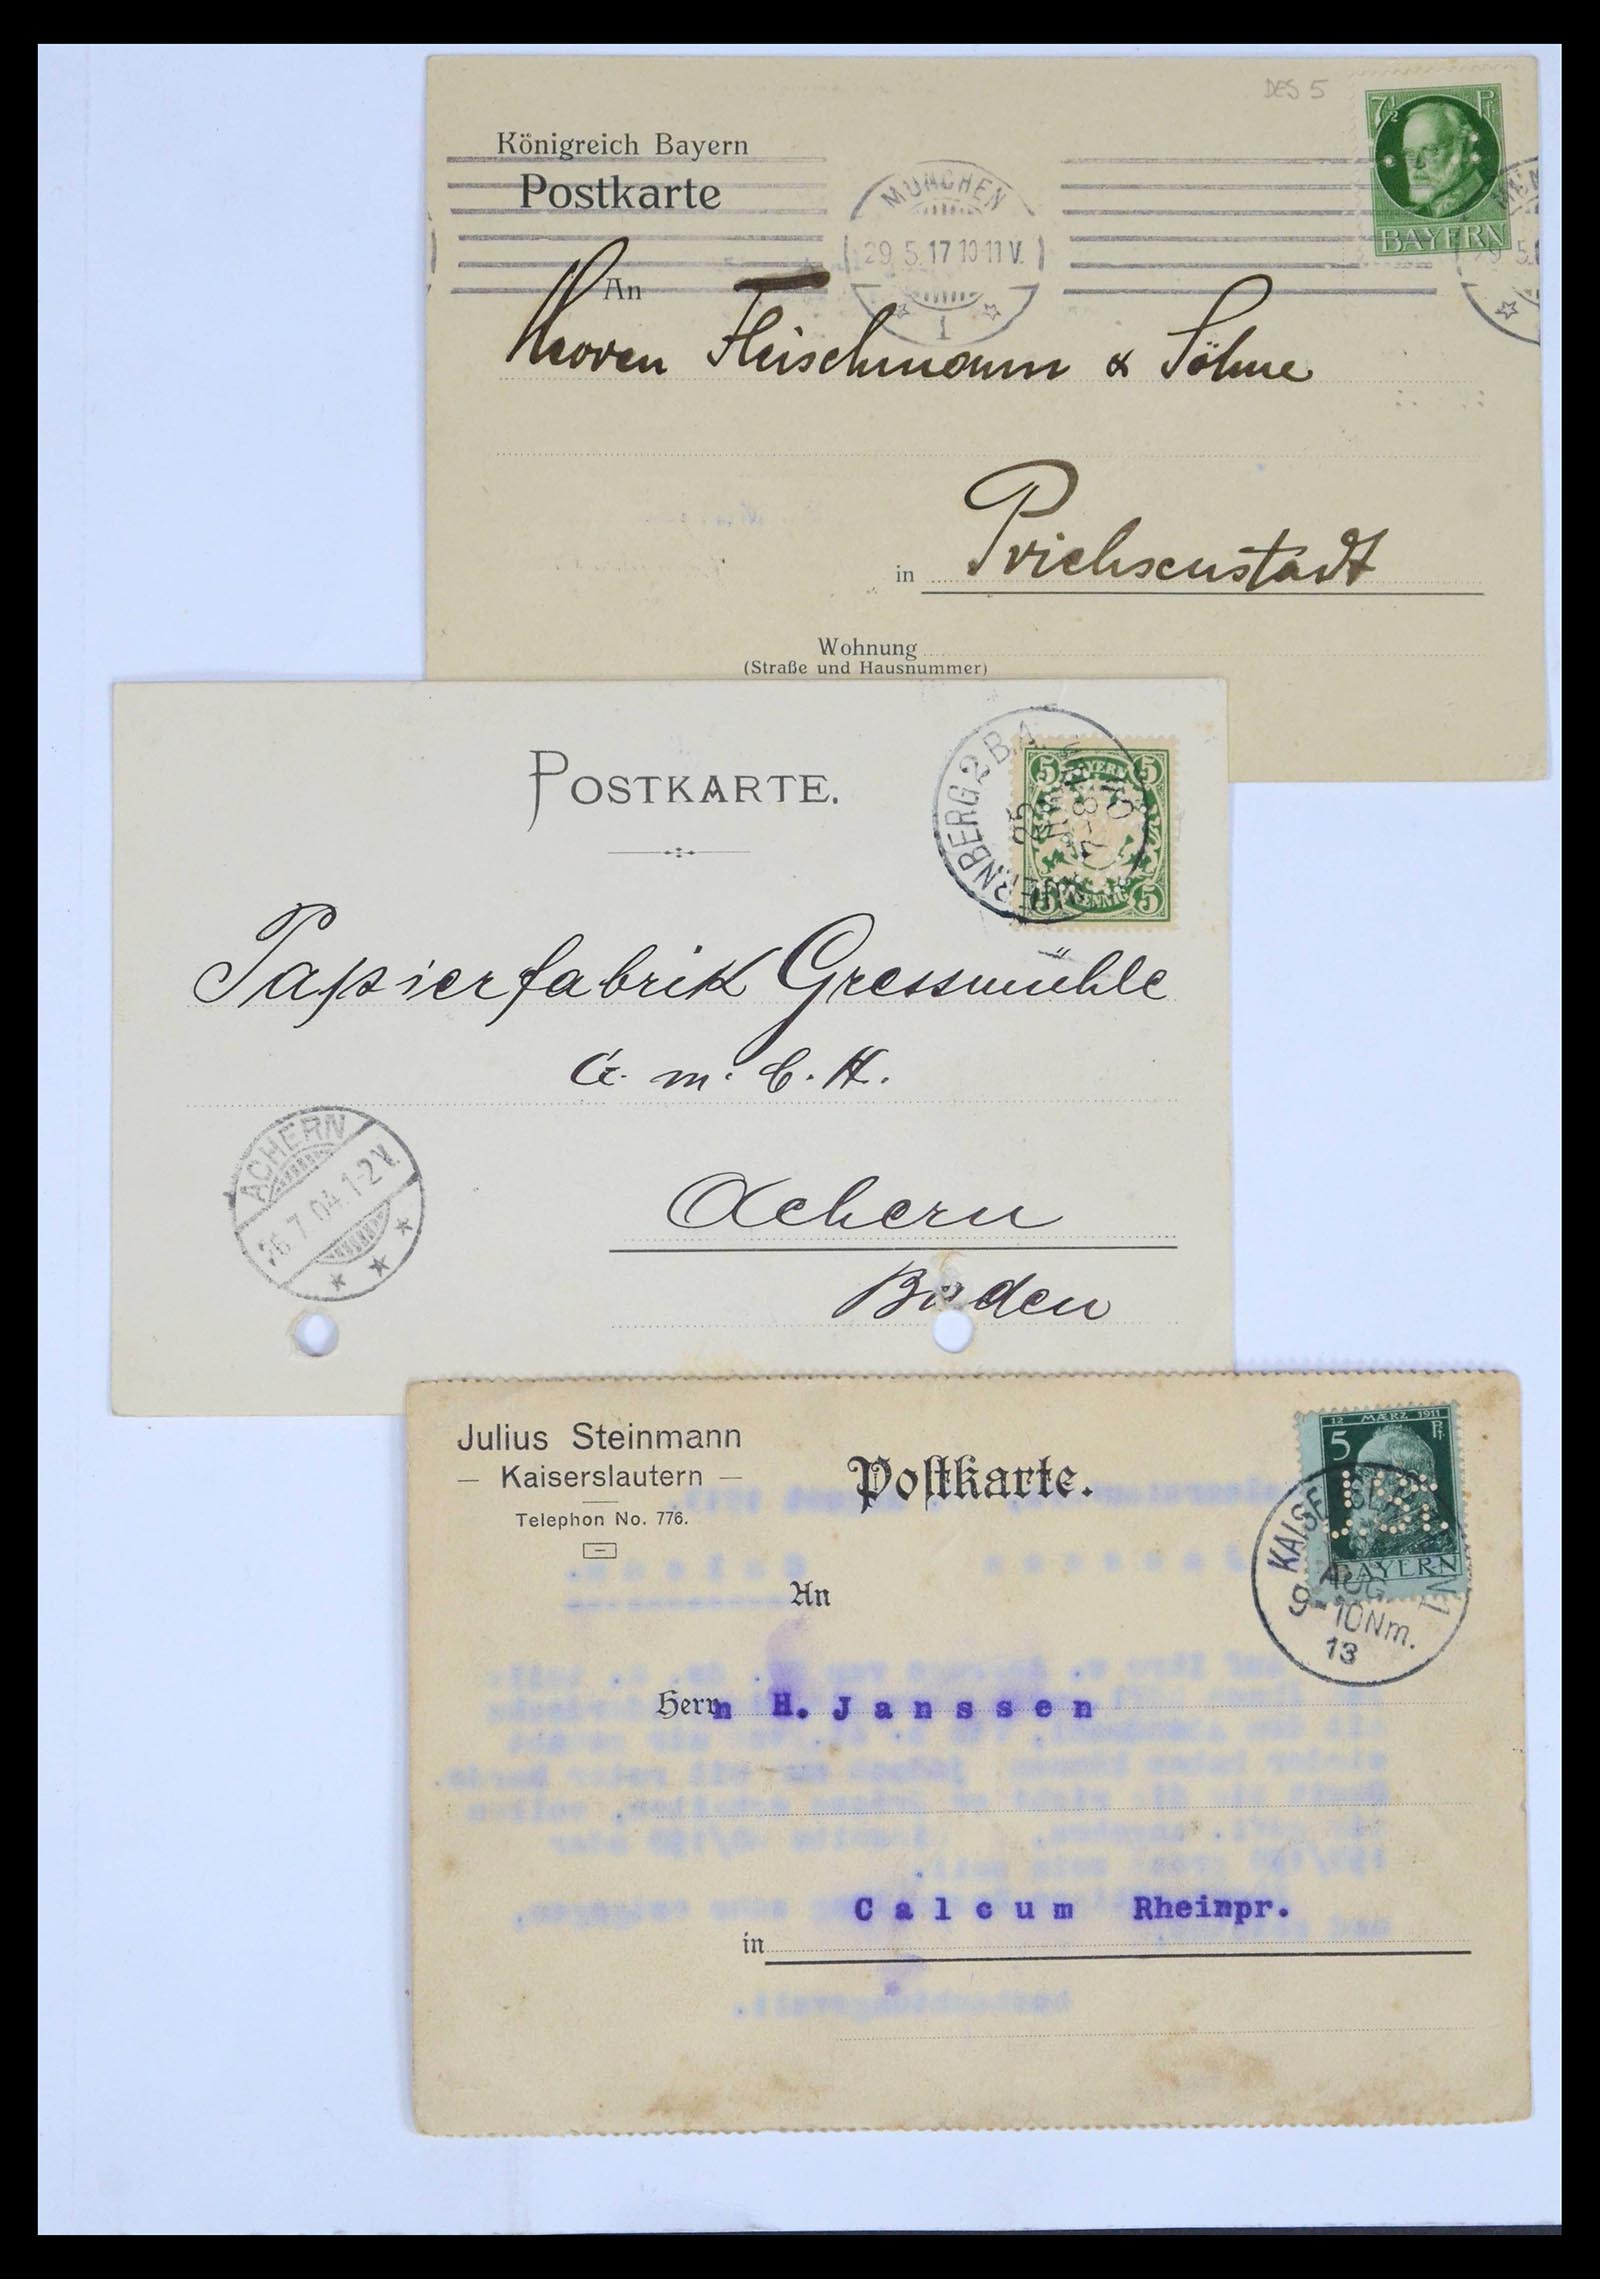 DES 5
Königreich Bayern
Postkarte
7½ Pf.
BAYERN
MÜNCHEN
29. 5. 17 10-11 V.
1
An
Herren Fleischmann & Söhne
in Prichsenstadt
Wohnung
(Straße und Hausnummer)
POSTKARTE.
NUERNBERG 2 B.A.
25
7-8
5 BAYERN 5
5 PFENNIG 5
Papierfabrik Gressmühle
G. m. b. H.
ACHERN
26. 7. 04. 1-2 V.
Achern
Baden
Julius Steinmann
— Kaiserslautern —
Telephon No. 776.
Postkarte.
12 MÆRZ 1911
5 Pf.
BAYERN
AUG.
9-10 Nm.
13
An
Herrn H. Janssen
Calcum Rheinpr.
in